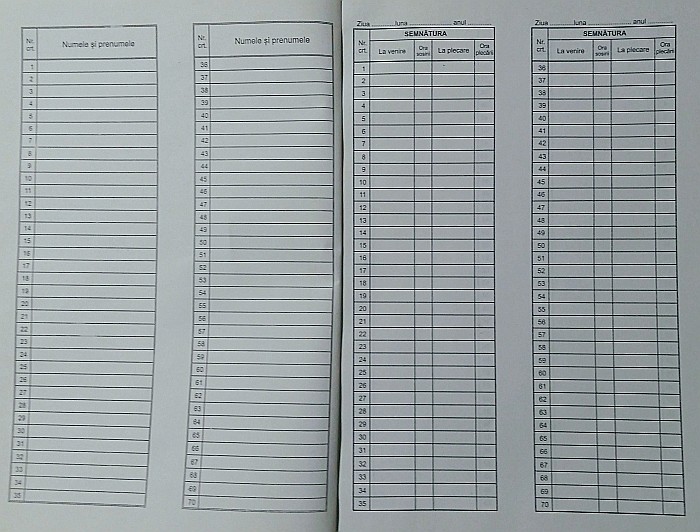 Nr. crt. Numele și prenumele
1
2
3
4
5
6
7
8
9
10
11
12
13
14
15
16
17
18
19
20
21
22
23
24
25
26
27
28
29
30
31
32
33
34
35
Nr. crt. Numele și prenumele
36
37
38
39
40
41
42
43
44
45
46
47
48
49
50
51
52
53
54
55
56
57
58
59
60
61
62
63
64
65
66
67
68
69
70
Ziua ........... luna ................... anul ............
SEMNĂTURA
Nr. crt. La venire Ora sosirii La plecare Ora plecării
1
2
3
4
5
6
7
8
9
10
11
12
13
14
15
16
17
18
19
20
21
22
23
24
25
26
27
28
29
30
31
32
33
34
35
Ziua ........... luna ................... anul ............
SEMNĂTURA
Nr. crt. La venire Ora sosirii La plecare Ora plecării
36
37
38
39
40
41
42
43
44
45
46
47
48
49
50
51
52
53
54
55
56
57
58
59
60
61
62
63
64
65
66
67
68
69
70